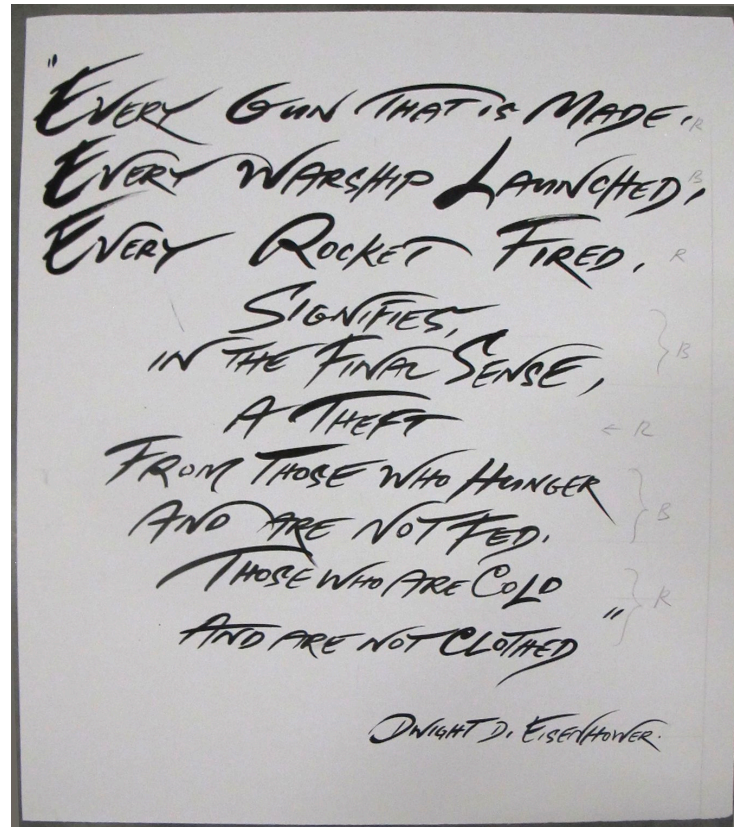 "EVERY GUN THAT IS MADE, R
EVERY WARSHIP LAUNCHED, B
EVERY ROCKET FIRED, R
SIGNIFIES,
IN THE FINAL SENSE, } B
A THEFT ← R
FROM THOSE WHO HUNGER
AND ARE NOT FED. } B
THOSE WHO ARE COLD
AND ARE NOT CLOTHED" } R
DWIGHT D. EISENHOWER.